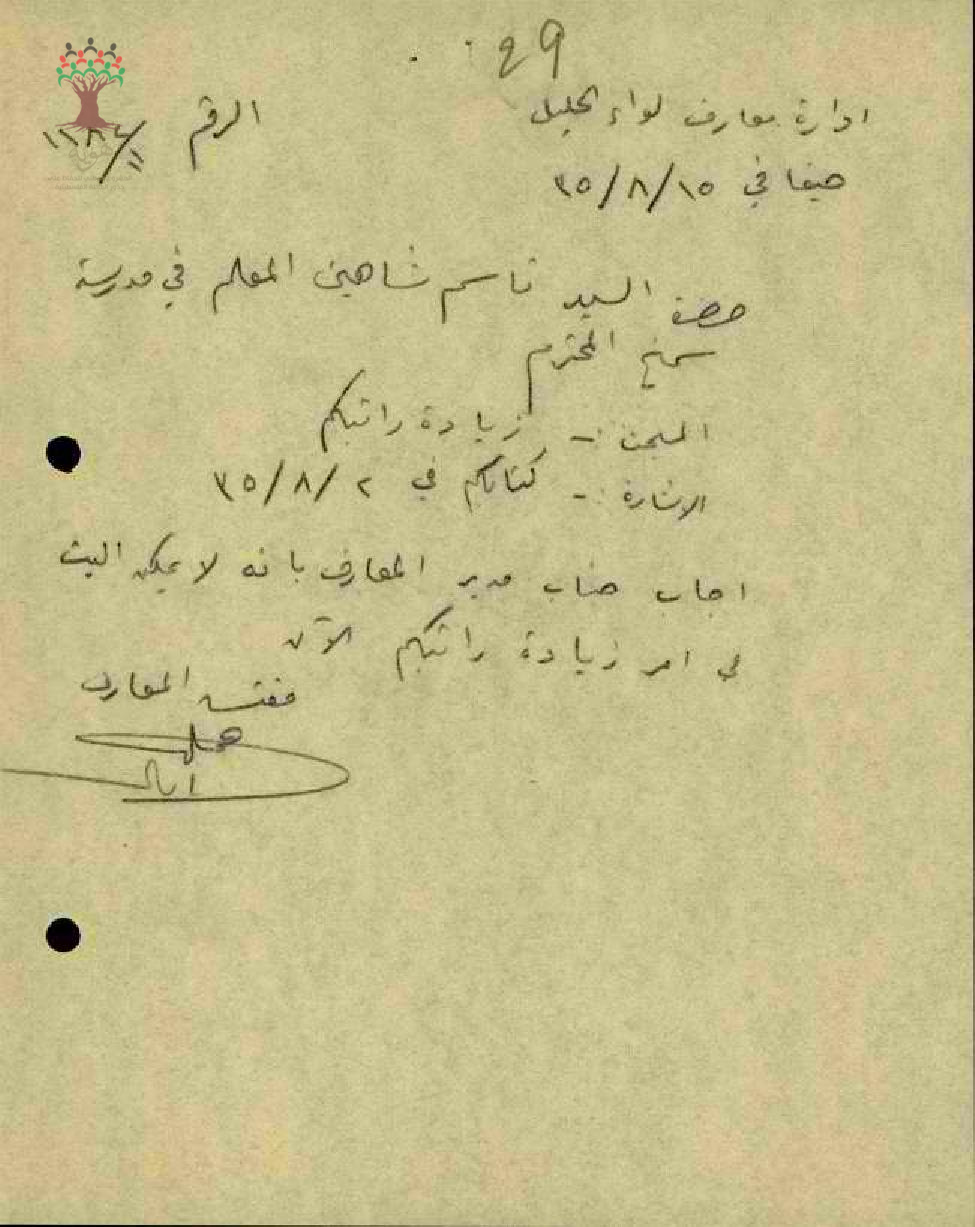 ٤٩
ادارة معارف لواء الجليل
الرقم
حيفا في ١٥/٨/٣٥
حضرة السيد قاسم شاهين المعلم في مدرسة
سمخ المحترم
المبحث :- زيادة راتبكم
الاشارة :- كتابكم في ٢/٨/٣٥
اجاب جناب مدير المعارف بانه لا يمكن البت
في امر زيادة راتبكم الآن
مفتش المعارف